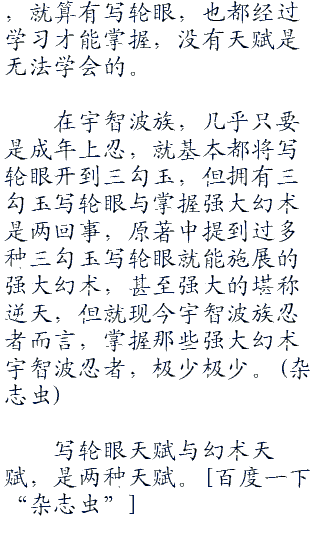 ，就算有写轮眼，也都经过
学习才能掌握，没有天赋是
无法学会的。
在宇智波族，几乎只要
是成年上忍，就基本都将写
轮眼开到三勾玉，但拥有三
勾玉写轮眼与掌握强大幻术
是两回事，原著中提到过多
种三勾玉写轮眼就能施展的
强大幻术，甚至强大的堪称
逆天，但就现今宇智波族忍
者而言，掌握那些强大幻术
宇智波忍者，极少极少。(杂
志虫)
写轮眼天赋与幻术天
赋，是两种天赋。[百度一下
“杂志虫”]